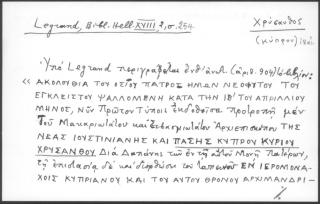 Legrand, Bibl. Hell. XVIII 2, σ. 254
Χρύσανθος
(Κύπρου)
Ὑπὸ Legrand περιγράφεται ἀριθ. 904
« ΑΚΟΛΟΥΘΙΑ ΤΟΥ ΟΣΙΟΥ ΠΑΤΡΟΣ ΗΜΩΝ ΝΕΟΦΥΤΟΥ ΤΟΥ
ΕΓΚΛΕΙΣΤΟΥ ΨΑΛΛΟΜΕΝΗ ΚΑΤΑ ΤΗΝ ΙΒ' ΤΟΥ ΑΠΡΙΛΛΙΟΥ
ΜΗΝΟΣ, Νῦν Πρῶτον Τύποις Ἐκδοθεῖσα προτροπῇ μὲν
Τοῦ Μακαριωτάτου καὶ Ἀρχιεπισκόπου ΤΗΣ
ΝΕΑΣ ΙΟΥΣΤΙΝΙΑΝΗΣ ΚΑΙ ΠΑΣΗΣ ΚΥΠΡΟΥ ΚΥΡΙΟΥ
ΧΡΥΣΑΝΘΟΥ Διὰ Δαπάνης τῶν ἐν τῇ αὐτοῦ Μονῇ Πατέρων,
τῇ ἐπιστασίᾳ δὲ καὶ διορθώσει τοῦ ΕΝ ΙΕΡΟΜΟΝΑ-
ΧΟΙΣ ΚΥΠΡΙΑΝΟΥ ΚΑΙ ΤΟΥ ΑΥΤΟΥ ΘΡΟΝΟΥ ΑΡΧΙΜΑΝΔΡΙ-